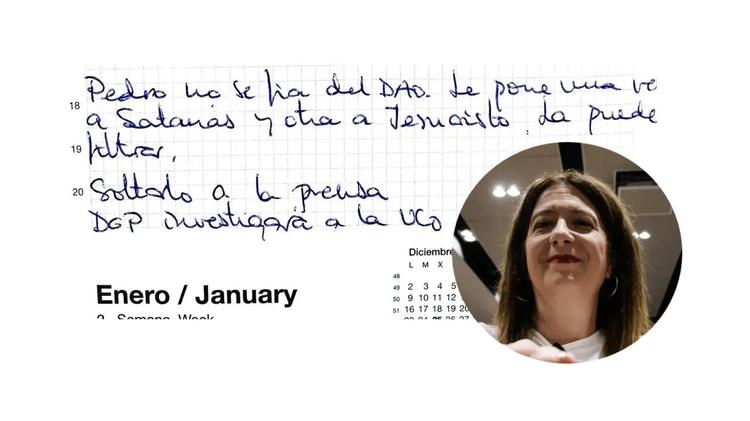 18 Pedro no se fia del DAO. Le pone una ve
a Satanás y otra a Jesucristo. La puede
19 filtrar.
20 Soltarlo a la prensa
DGP investigará a la UCO
Diciembre
L M X
48
49 2 3 4 5
50 9 10 11 12
51 16 17 18 19 20
Enero / January